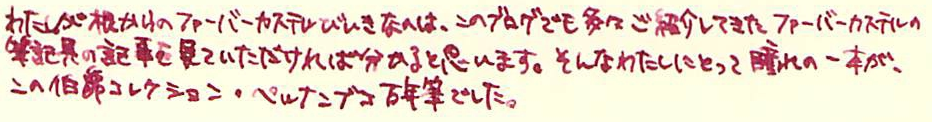 わたしが根からのファーバーカステルびいきなのは、このブログでも多々ご紹介してきたファーバーカステルの
筆記具の記事を見ていただければ分かると思います。そんなわたしにとって憧れの一本が、
この伯爵コレクション・ペルナンブコ万年筆でした。